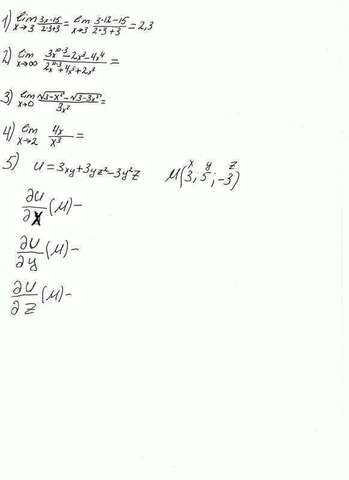 1) lim x→3 3x-15/2·3+3 = lim x→3 3·12-15/2·3+3 = 2,3
2) lim x→∞ 3x^10·3-2x²-4x⁴/2x^10·3+4x³+2x² =
3) lim x→0 √3-x²-√3-3x²/3x² =
4) lim x→2 4x/x³ =
5) u = 3xy+3yz²-3y²z M(3; 5; -3) x y z
∂u/∂x (M) -
∂u/∂y (M) -
∂u/∂z (M) -